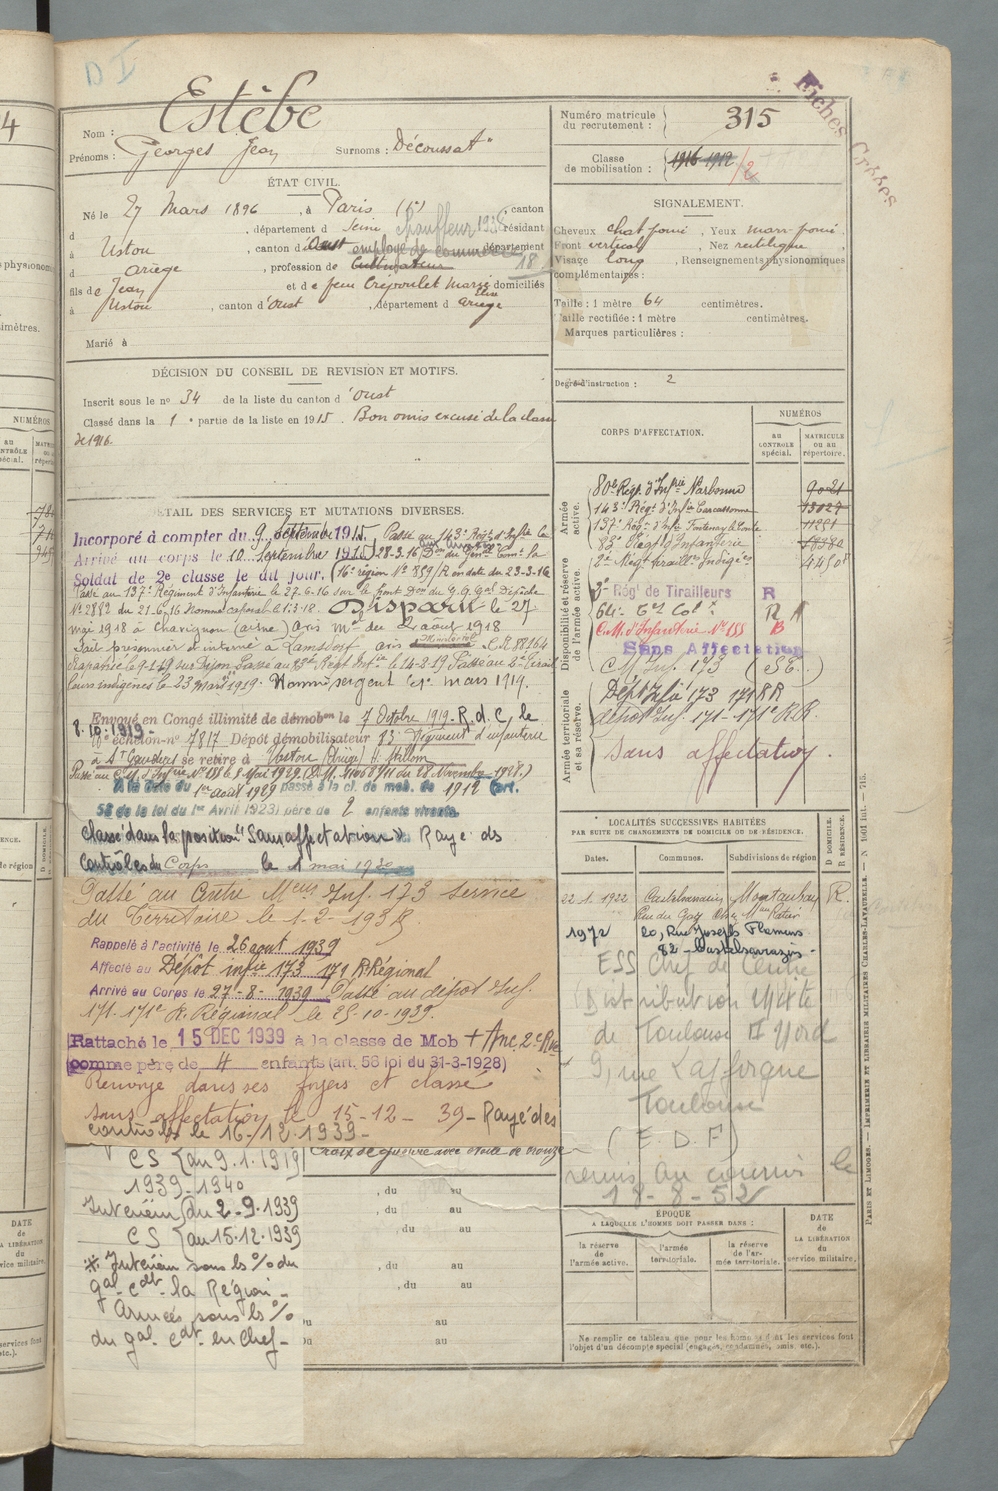 D I
Fiches Grises
Nom : Estèbe
Prénoms : Georges Jean Surnoms : Découssat
Numéro matricule du recrutement : 315
Classe de mobilisation : 1916 1912 /2
ÉTAT CIVIL.
Né le 27 Mars 1896, à Paris (15e), canton
d , département d Seine Chauffeur 1936 résidant
à Ustou, canton d'Oust employé de commerce département
d Ariège, profession de Cultivateur 18
fils de Jean et de feu Crépoulet Marie domiciliés
à Ustou, canton d'Oust, département d Ariège
Marié à
SIGNALEMENT.
Cheveux chat foncé, Yeux marr foncé.
Front vertical, Nez rectiligne,
Visage long, Renseignements physionomiques
complémentaires :
Taille : 1 mètre 64 centimètres.
Taille rectifiée : 1 mètre centimètres.
Marques particulières :
DÉCISION DU CONSEIL DE REVISION ET MOTIFS.
Inscrit sous le no 34 de la liste du canton d'Oust
Classé dans la 1e partie de la liste en 1915. Bon omis excusé de la classe
de 1916.
Degré d'instruction : 2
CORPS D'AFFECTATION.
NUMÉROS
au CONTRÔLE spécial.
MATRICULE ou au répertoire.
Armée active.
80e Régt d'Infrie Narbonne
143e Régt d'Infie Carcassonne
137e Régt d'Infie Fontenay le Comte 11221
83e Régt d'Infanterie
2e Rég Tiraill. Indigènes
Disponibilité et réserve de l'armée active.
3e Régt de Tirailleurs R
C.M. d'Infanterie No 155 B
Sans Affectation
C M Inf. 173
Armée territoriale et sa réserve.
Dépôt Infie 173 171 R R
dépôt Inf. 171-171e R.R.
Sans affectation.
DÉTAIL DES SERVICES ET MUTATIONS DIVERSES.
Incorporé à compter du 9 septembre 1915. Passé au 143e Régt d'Infie le
Arrivé au corps le 10 Septembre 1915 28-3-16
Soldat de 2e classe le dit jour. (16e région No 859/R en date du 23-3-16
Passé au 137e Régiment d'Infanterie le 27-6-16 sur le front Don du G.Q.Gal Dépêche
No 2882 du 21-6-16 Nommé caporal le 1-3-18. Disparu le 27
mai 1918 à Chavignon (Aisne) avis Mel du 2 août 1918
Fait prisonnier et interné à Lamsdorf avis C.R 88164
Rapatrié le 9-1-19 sur Dijon Passé au 83e Régt Infie le 14-2-19 Passé au 2e Tirail
leurs indigènes le 23 mars 1919. Nommé sergent le 1er mars 1919.
Envoyé en Congé illimité de démobon le 7 Octobre 1919. R.d.C, le
8.10.1919.
échelon no 7817 Dépôt démobilisateur 83e Régiment d'infanterie
à St Gaudens se retire à Ustou (Ariège)
A la date du 1er août 1929 passé à la cl. de mob. de 1912 (art.
58 de la loi du 1er Avril 1923) père de 2 enfants vivants.
Classé dans la position "Sans affectation". Rayé des
Contrôles du Corps le 1 mai 1930
Passé au Centre Meur Inf. 173 service
du Territoire le 1-2-1938
Rappelé à l'activité le 26 août 1939
Affecté au Dépôt infie 173 171 R. Régional
Arrivé au Corps le 27-8-1939. Passé au dépôt Inf.
171-171e R. Régional le 25-10-1939.
Rattaché le 15 DEC 1939 à la classe de Mob + Anc. 2e Rve
comme père de 4 enfants (art. 58 loi du 31-3-1928)
Renvoyé dans ses foyers et classé
sans affectation le 15-12-39 - Rayé des
contrôles le 16-12-1939-
Croix de guerre avec étoile de bronze
CS {au 9.1.1919
1939-1940
Intérieur {du 2-9-1939
CS {au 15.12.1939
* Intérieur sous ls % du
gal cdt la Région-
Armées sous ls %
du gal cdt en Chef-
, du au
, du au
, du au
, du au
, du au
au
au
LOCALITÉS SUCCESSIVES HABITÉES
PAR SUITE DE CHANGEMENTS DE DOMICILE OU DE RÉSIDENCE.
Dates. Communes. Subdivisions de région D DOMICILE. R RÉSIDENCE.
22.1.1922 Castelsarrasin Montauban R.
1972 20, Rue Joseph Flamens
82 - Castelsarrasin-
ESS Chef de Centre
Distribution Mixte
de Toulouse Nord
9, rue Lafforgue
Toulouse
(E.D.F)
remis au courrier le
18-8-52
ÉPOQUE
A LAQUELLE L'HOMME DOIT PASSER DANS :
la réserve de l'armée active.
l'armée territoriale.
la réserve de l'armée territoriale.
DATE de LA LIBÉRATION du service militaire.
Ne remplir ce tableau que pour les hommes dont les services font
l'objet d'un décompte spécial (engagés, condamnés, omis, etc.).
PARIS ET LIMOGES. — IMPRIMERIE ET LIBRAIRIE MILITAIRES CHARLES-LAVAUZELLE.